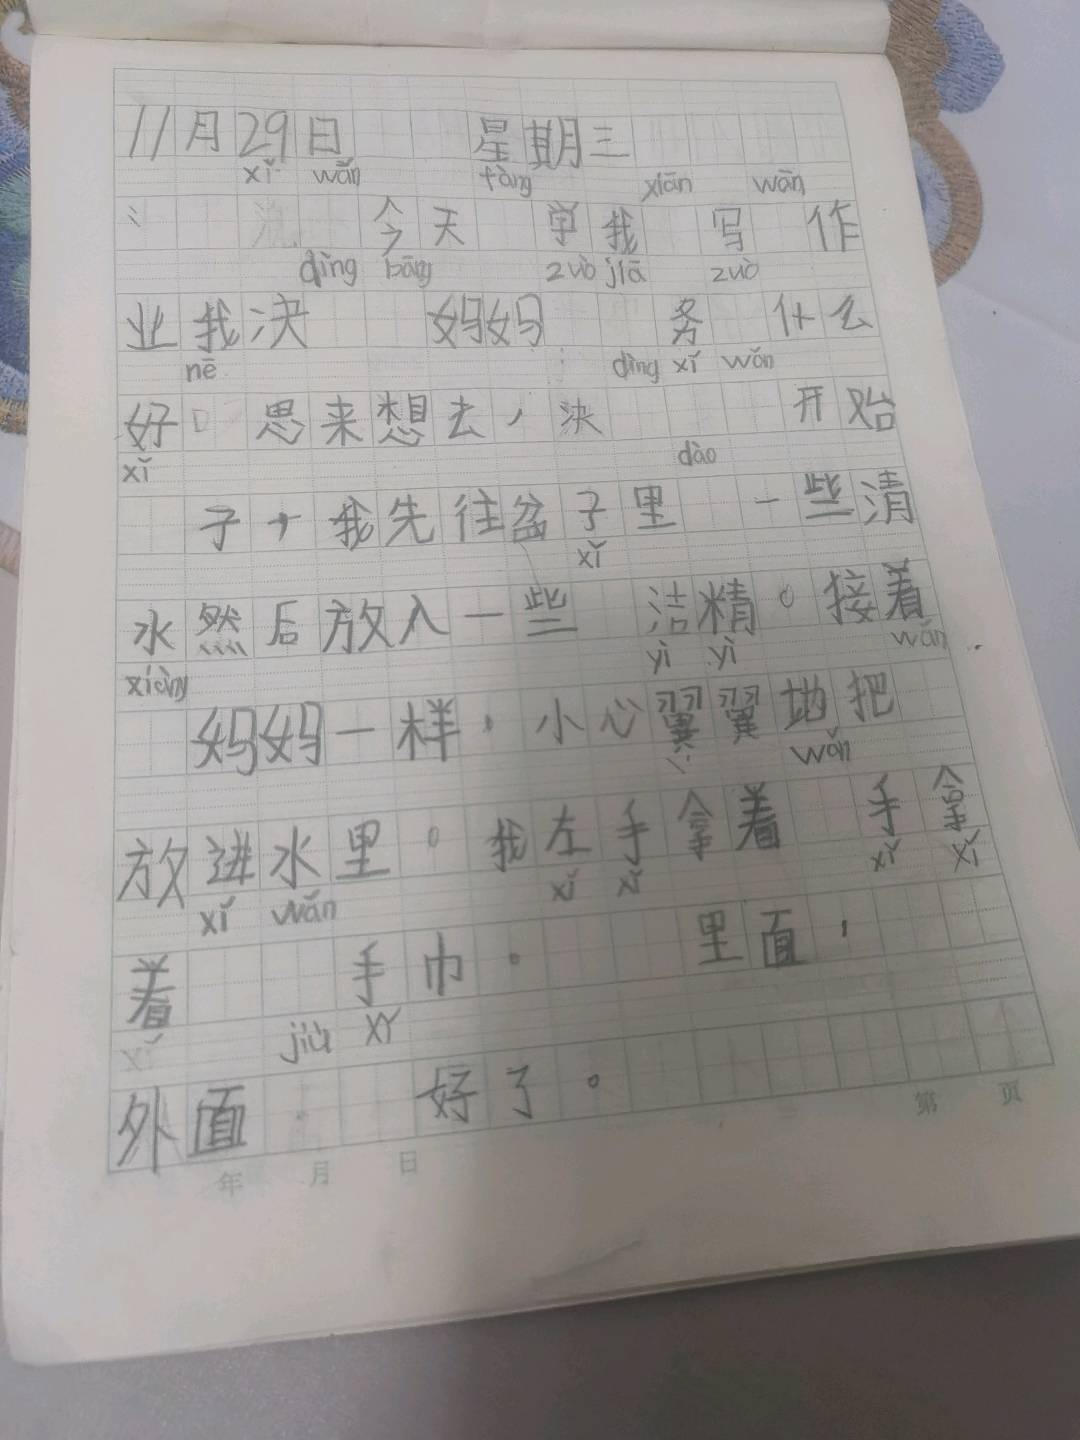 11月29日 星期三
xǐ wǎn tàng xiān wān
今天 学我 写 作
dìng bāng zuò jiā zuò
业我决 妈妈 务 什么
nē dìng xǐ wǎn
好 思来想去，决 开始
xǐ dào
子，我先往盆子里 一些清
xǐ
水然后放入一些 洁精。接着
xiàng yì yì wǎn
妈妈一样，小心翼翼地把
wǎn
放进水里。我左手拿着 手拿
xǐ wǎn xǐ xǐ xǐ xǐ
着 手巾。 里面，
xǐ jiù xǐ
外面 好了。
年 月 日 第 页